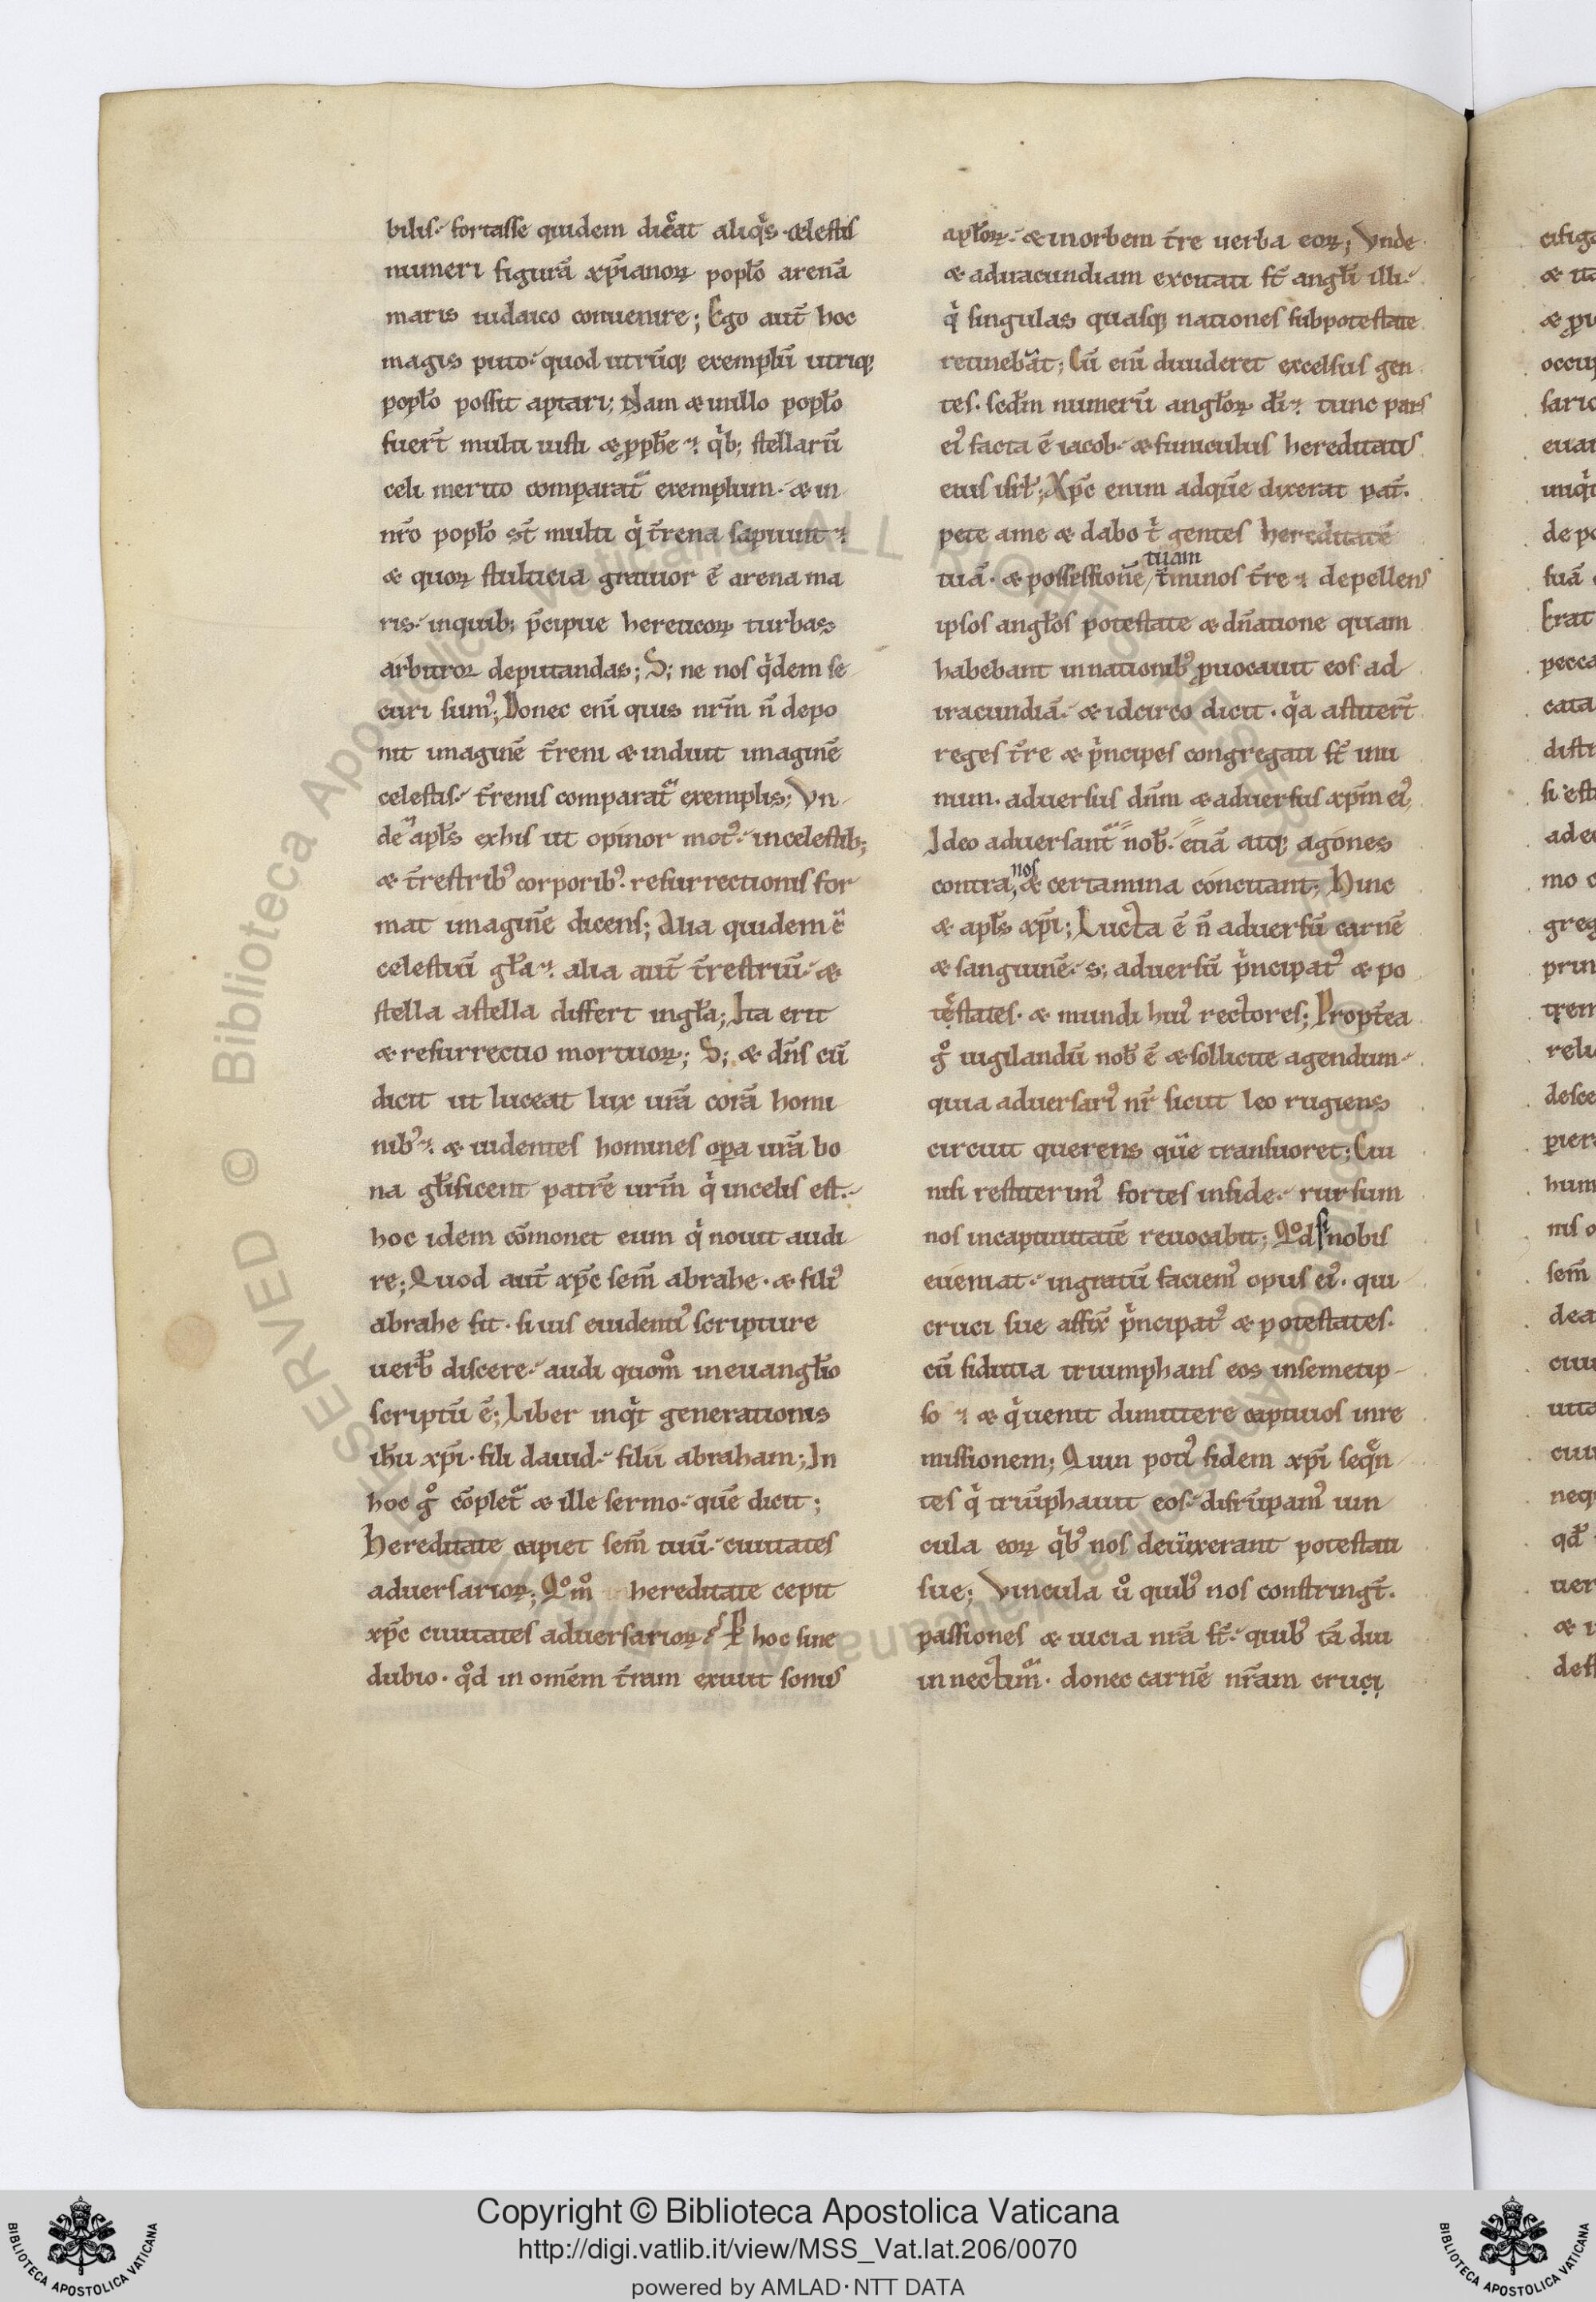 bilis. fortasse quidem dicͤat aliqͥs celestis
numeri figurā xp̄ianoꝝ popl̄o arenā
maris iudaico conuenire; Ego aut̄ hoc
magis puto. quod utrūq; exemplū utriq;
popl̄o possit aptari; Nam & in illo popl̄o
fuer̄t multi iusti & ꝓph̄e. qͥb; stellarū
celi merito comparat᷑ exemplum. & in
nr̄o popl̄o st̄ multi qͥ t̄rena sapiunt.
& quoꝝ stulticia grauior ē arena ma
ris. inquib; p̄cipue hereticoꝝ turbas
arbitror deputandas; S; ne nos qͥdem se
curi sumꝰ; Donec enī quis nr̄m n̄ depo
nit imaginē t̄reni & induit imaginē
celestis. t̄renis comparat᷑ exemplis; Vn
de apl̄s exhis ut opinor motꝰ. incelestib;
& t̄restribꝰ corporibꝰ. resurrectionis for
mat imaginē dicens; Alia quidem ē
celestiū gl̄a. alia aut̄ t̄restriū. &
stella astella differt ingl̄a; Ita erit
& resurrectio mortuoꝝ; S; & dn̄s cū
dicit ut luceat lux ur̄a corā homi
nibꝰ. & uidentes homines oꝑa ur̄a bo
na gl̄ificent patrē ur̄m qͥ incelis est.
hoc idem cōmonet eum qͥ nouit audi
re; Quod aut̄ xp̄c sem̄ abrahe. & filiꝰ
abrahe sit. si uis euidentiꝰ scripture
uerb̄ discere. audi quomͦ ineuangl̄io
scriptū ē; Liber inqͥt generationis
ih̄u xp̄i. fili dauid. filii abraham; In
hoc gͦ cōplet᷑ & ille sermo. quē dicit;
Hereditate capiet sem̄ tuū. ciuitates
aduersarioꝝ; Qͦmͦ hereditate cepit
xp̄c ciuitates aduersarioꝝ? ꝑ hoc sine
dubio. qͦd in omēm t̄ram exiuit sonus
apl̄oꝝ. & inorbem t̄re uerba eoꝝ; Vnde
& adiracundiam excitati st̄ angl̄i illi.
qͥ singulas quasq; nationes subpotestate
retinebāt; Cū enī diuideret excelsus gen
tes. scd̄m numerū angl̄oꝝ dī. tunc pars
eiꝰ facta ē iacob. & funiculus hereditatis
eius isrl̄; Xp̄c enim adquē dixerat pat̄.
pete ame & dabo tͥ gentes hereditatē
tuam
tuā. & possessionē t̄minos t̄re. depellens
ipsos angl̄os potestate & dn̄atione quam
habebant innationibꝰ ꝓuocauit eos ad
iracundiā. & idcirco dicit. qͥa astiter̄t
reges t̄re & pͥncipes congregati st̄ inu
num. aduersus dn̄m & aduersus xp̄m eiꝰ;
Ideo aduersant᷑ nob̄. etiā atq; agones
nos
contra & certamina concitant; Hinc
& apl̄s xp̄i; Lucta ē n̄ aduersū carnē
& sanguinē. s; aduersū pͥncipatꝰ & po
testates. & mundi huiꝰ rectores; Propt̄ea
gͦ uigilandū nob̄ ē & sollicite agendum.
quia aduersariꝰ nr̄ sicut leo rugiens
circuit querens quē transuoret; Cui
nisi restiterimꝰ fortes infide. rursum
nos incaptiuitatē reuocabit; Qͦd si nobis
eueniat. ingratū faciemꝰ opus eiꝰ. qui
cruci sue affix̄ pͥncipatꝰ & potestates.
cū fiducia triumphans eos insemetip
so & qͥ uenit dimittere captiuos inre
missionem; Quin potiꝰ fidem xp̄i seqͤn
tes qͥ triūphauit eos. disrūpamꝰ uin
cula eoꝝ qͥbꝰ nos deuixerant potestati
sue; Vincula uͦ quibꝰ nos constringt̄.
passiones & uicia nr̄a st̄. quibꝰ tā diu
innectimᷓ. donec carnē nr̄am cruci
Copyright © Biblioteca Apostolica Vaticana
http://digi.vatlib.it/view/MSS_Vat.lat.206/0070
powered by AMLAD·NTT DATA